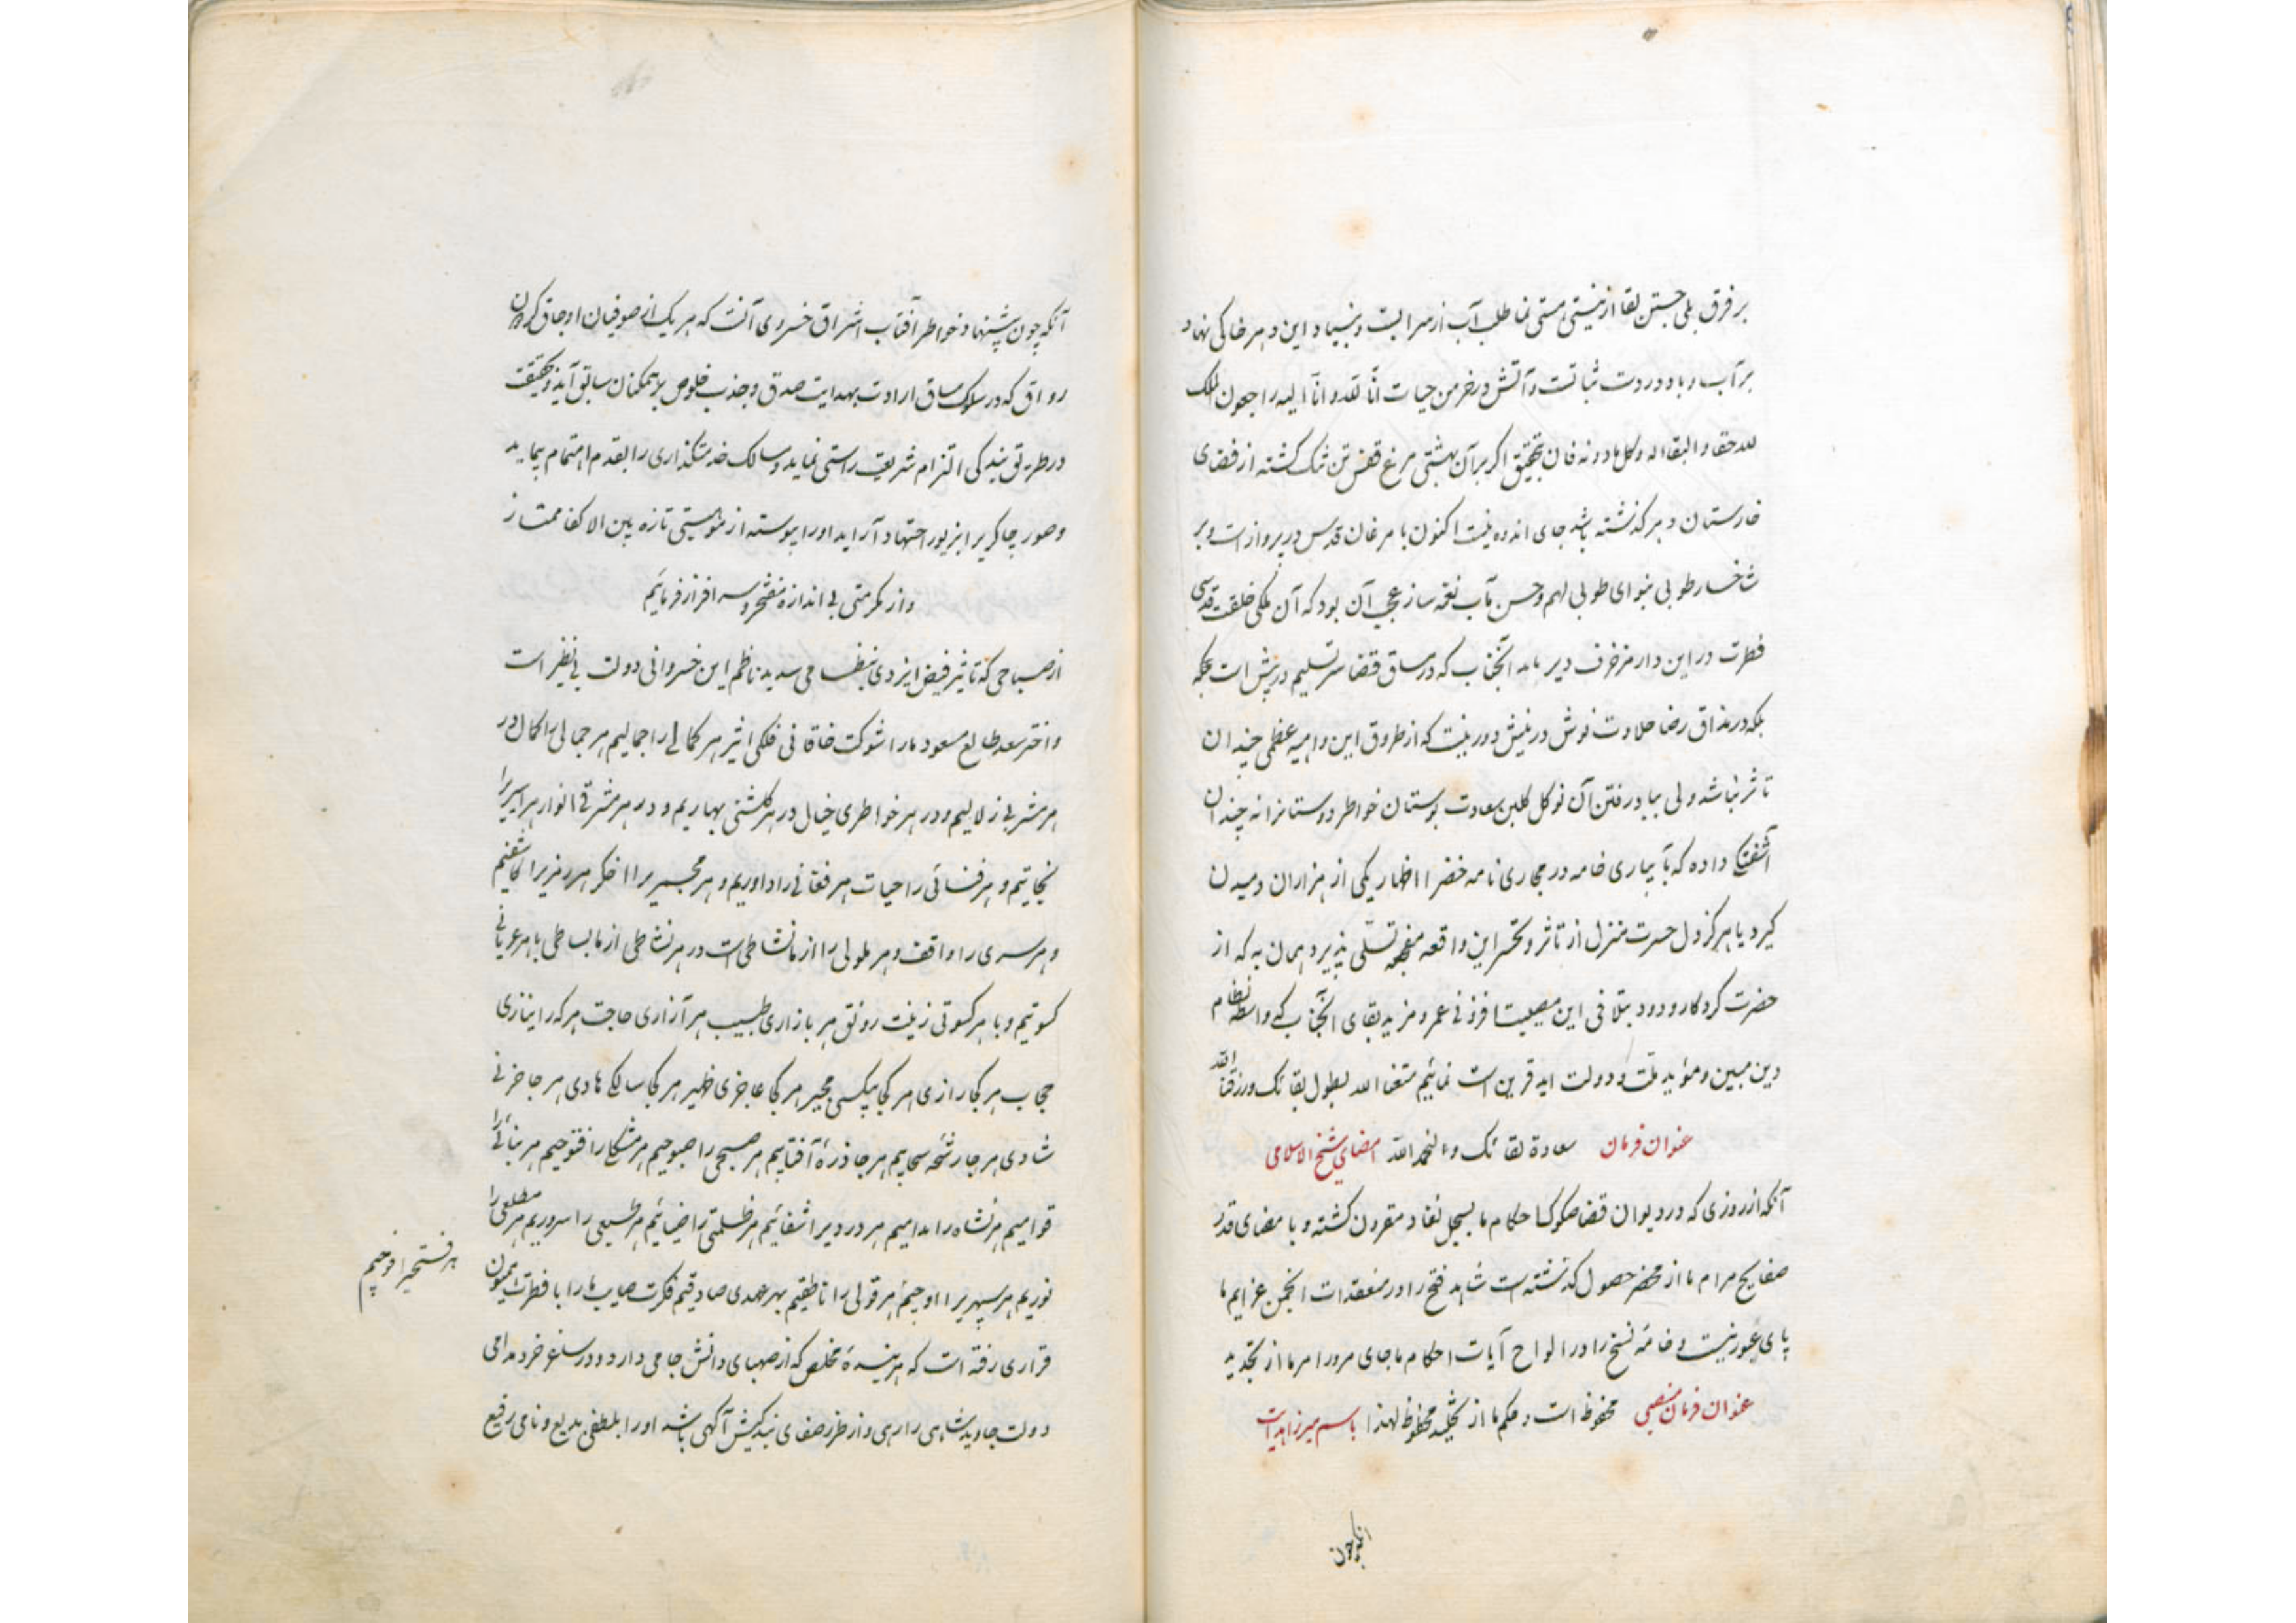 بر فرق بلی جستن لقا از نیستی هستی نما طلب آب از سرابست و بنیاد این دهر خاکی نهاد
بر آب و باد در دست ثباتست و آتش در خرمن حیات انا لله و انا الیه راجعون الملک
لله حقا و البقا له و کل ما دونه فان بتحقیق اگر بر آن بهشتی مرغ قفس تن تنک گشته از فضای
خارستان دهر گذشته باشد جای اندوه نیست اکنون با مرغان قدس در پرواز است و بر
شاخسار طوبی بنوای طوبی لهم و حسن مآب نغمه ساز عجب آن بود که آن ملکی خلقت قدسی
فطرت در این دار مزخرف دیر ماند آنجناب که در مساق قضا سر تسلیم در پیش است
بلکه در مذاق رضا حلاوت نوش در نیش دور نیست که از طروق این داهیه عظمی چندان
تاثر نباشد ولی بباد رفتن آن نوگل گلبن سعادت بوستان خواطر دوستانرا نه چندان
آشفتگی داده که بآبیاری خامه در مجاری نامه خضرا اظهار یکی از هزاران دمیدن
گیرد یا هرگز دل حسرت منزل از تاثر و تحسر این واقعه مفجعه تسلی پذیرد همان به که از
حضرت کردگار ودود بتلافی این مصیبت افزونی عمر و مزید بقای آنجناب که واسطه نظام
دین مبین و موید ملت و دولت ابد قرین است نمائیم متعنا الله بطول بقائک و رزقنا الله
سعادة لقائک و الحمد لله عنوان فرمان امضای شیخ الاسلامی
آنکه از روزی که در دیوان قضا صکوک احکام ما بسجل نفاد مقرون گشته و با مضای قدر
صفایح مرام ما از محضر حصول گذشته است شاهد فتح را در منعقدات انجمن عزایم ما
پای عبور نیست و خامه نسخ را در الواح آیات احکام ما جای مرور امر ما از تجدید
محفوظ است و حکم ما از محظوظ لهذا عنوان فرمان منصبی باسم میرزا هدایت
آنکه چون
آنکه چون پیشنهاد خواطر آفتاب اشراق خسروی آنست که هر یک از صوفیان اوجاق گردون
رواق که در سلوک مساق ارادت بهدایت صدق و جذب خلوص بر همکنان سابق آید و بحقیقت
در طریق بندگی التزام شریعت راستی نماید و مسالک خدمتگذاری را بقدم اهتمام پیماید
و صور چاکریرا بزیور اجتهاد آراید او را پیوسته از موهبتی تازه بین الاکفا ممتاز
و از مکرمتی بی اندازه مفتخر و سرافراز فرمائیم
از صباحی که تاثیر فیض ایزدی بنظامی سدید ناظم این خسروانی دولت بی نظیر است
و اختر سعد طالع مسعود ما را شوکت خاقانی فلکی اثیر هر کمالی را جمالیم هر جمالی را کمال در
هر مشربی زلالیم و در هر خواطری خیال در هر گلشنی بهاریم و در هر مشرقی انوار هر اسیریرا
نجاتیم و هر فنائی را حیات هر فغانی را داوریم و هر مجمریرا اخگر هر رمزیرا کاشفیم
و هر سری را واقف و هر ملولی را از ما نشاطی است در هر نشاطی از ما بساطی با هر عریانی
کسوتیم و با هر کسوتی زینت رونق هر بازاری طبیب هر آزاری حاجت هر که را نیازی
حجاب هر کجا رازی هر کجا بیکسی مجیر هر کجا عاجزی ظهیر هر کجا سالکی هادی هر جا حزنی
شادی هر جا رشحه سحابیم هر جا ذره آفتابیم هر صبحی را صبوحیم هر مشکلی را فتوحیم هر بنائی را
قوامیم هر نشاه را مدامیم هر دردیرا شفائیم هر ظلمتی را ضیائیم هر طبعی را سروریم هر مطلعی را
نوریم هر سپهریرا اوجیم هر قولی را ناطقیم بهر عهدی صادقیم فکرت صایب ما را با فطرت همیون
هر فتحیرا فوجیم
قراری رفته است که هر بنده مخلص که از صهبای دانش جامی دارد و در ساغر خرد مدامی
دولت جاوید شاهی را رهی و از طرز صفای بندگیش آگهی باشد او را بلطفی بدیع و نامی رفیع